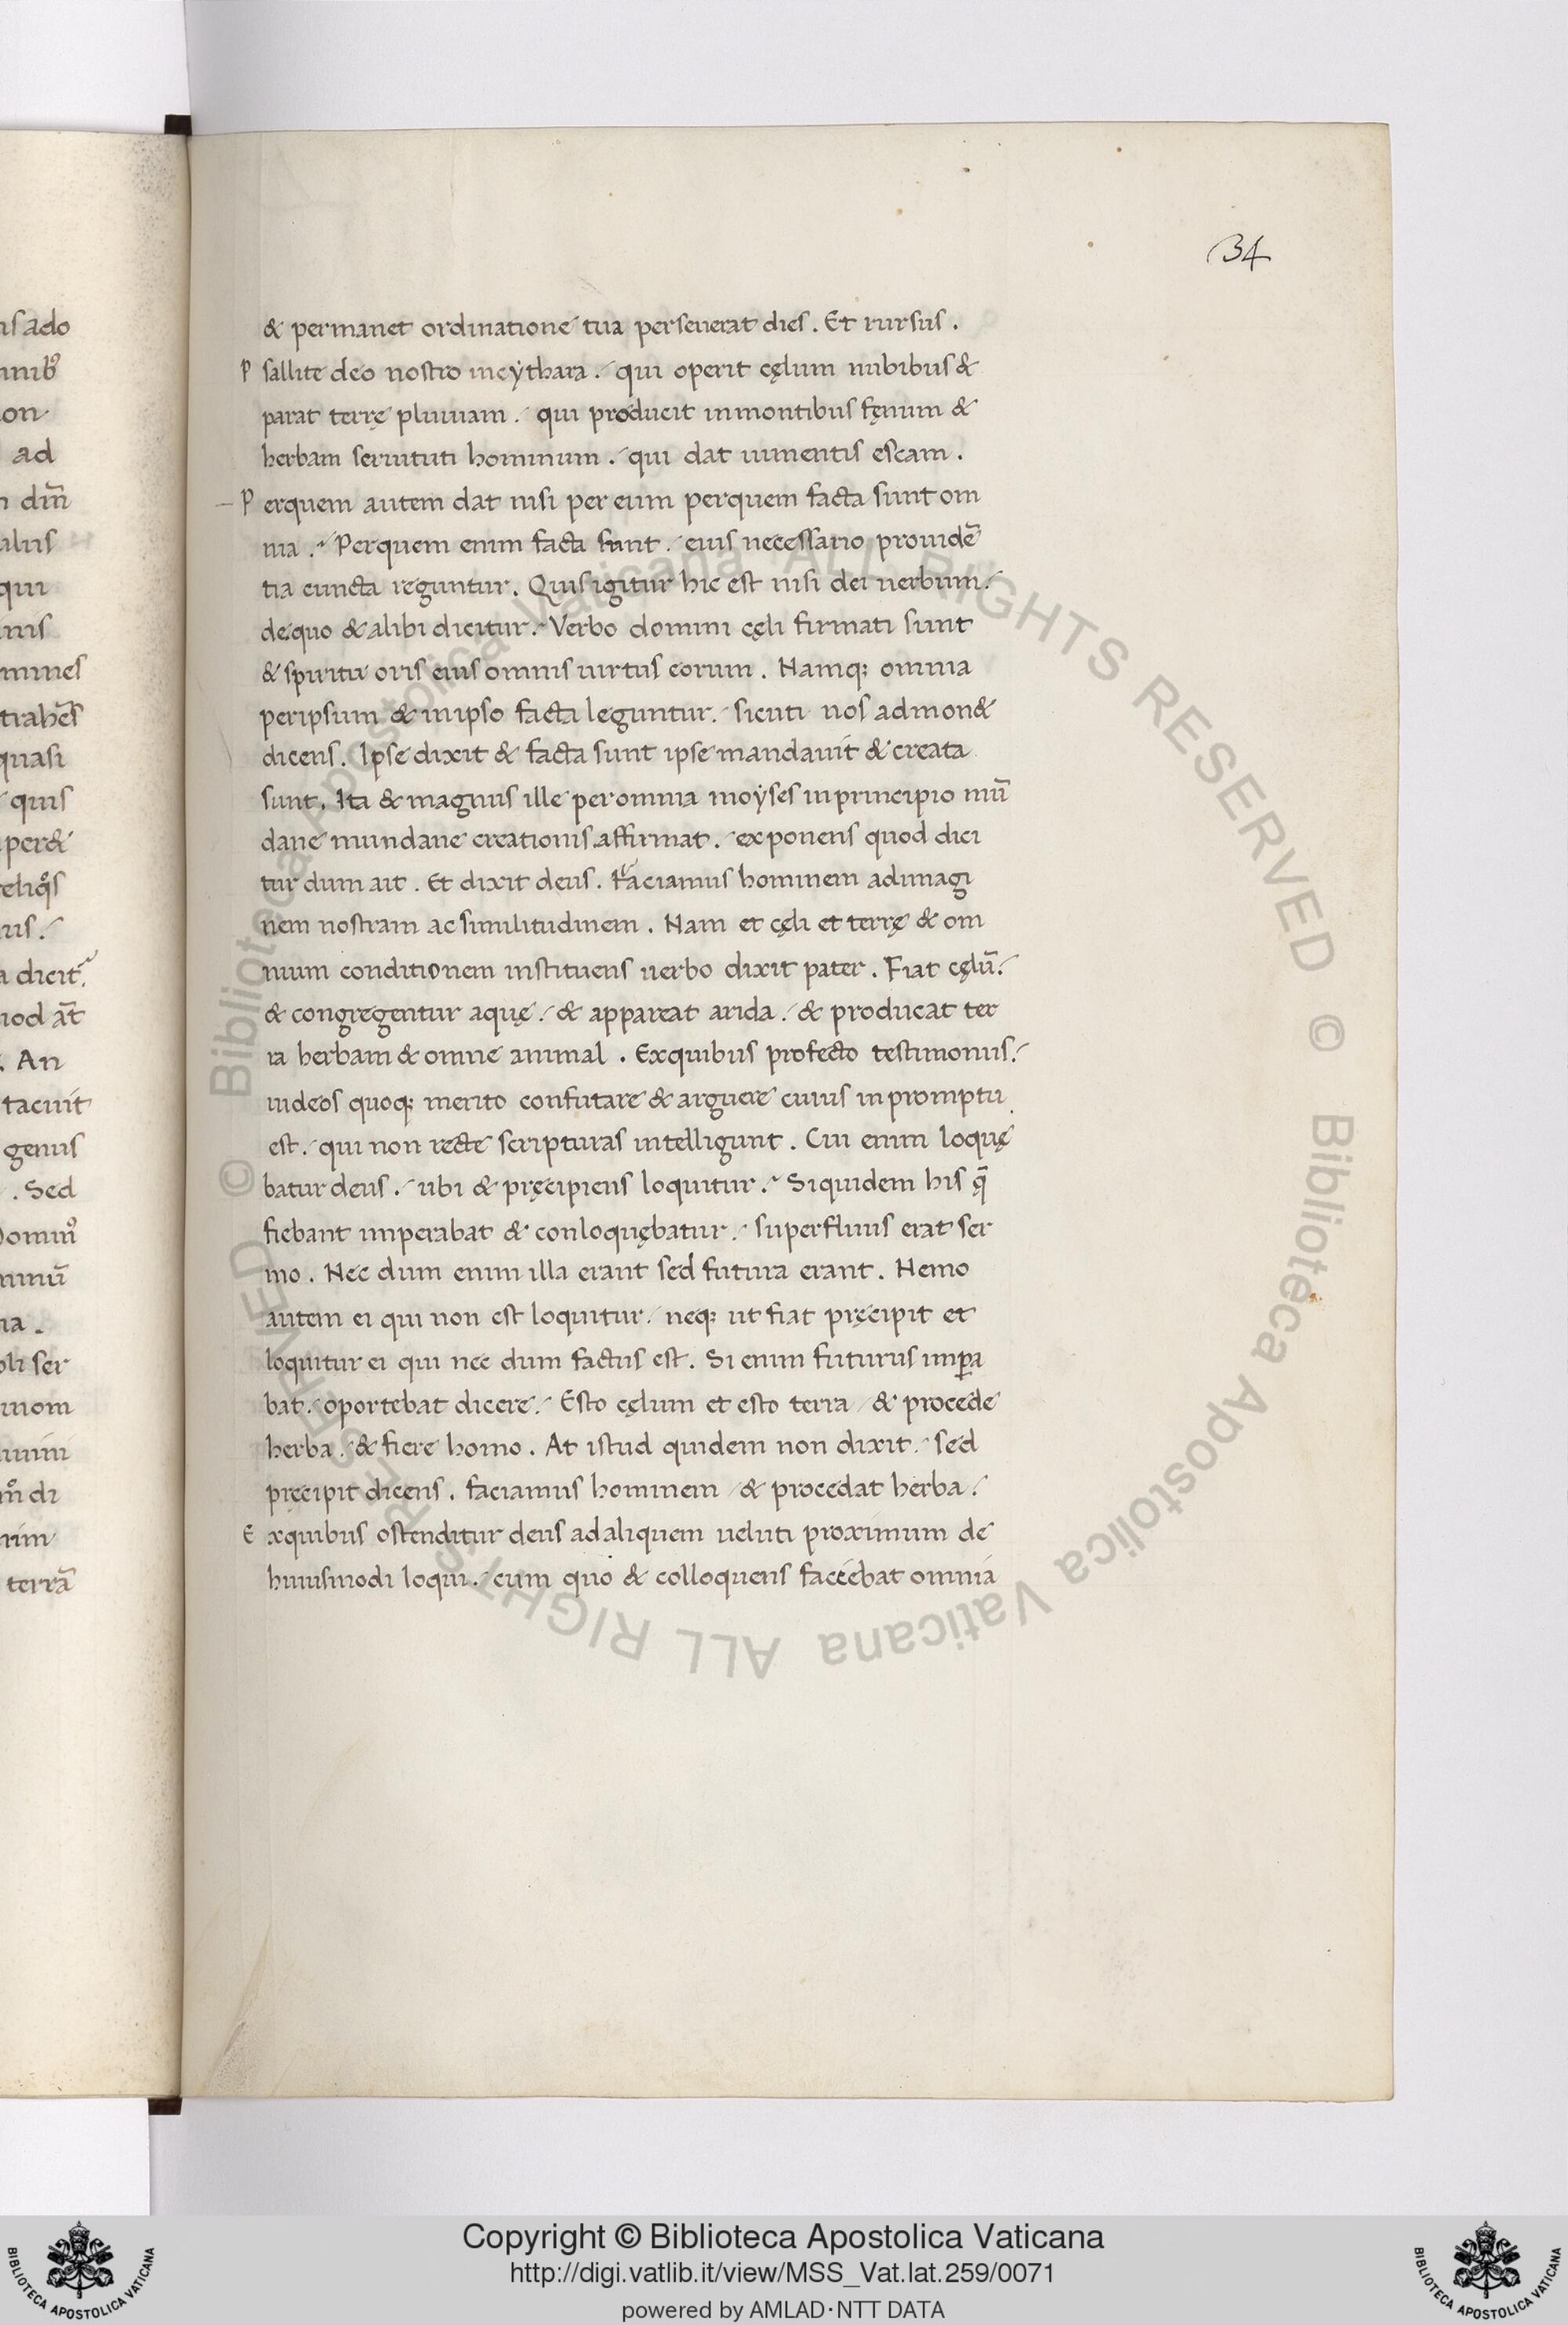 34
& permanet ordinatione tua perseuerat dies. Et rursus.
P sallite deo nostro incÿthara. qui operit cęlum nubibus &
parat terrę pluuiam. qui producit inmontibus fęnum &
herbam seruituti hominum. qui dat iumentis escam.
P erquem autem dat nisi per eum perquem facta sunt om
nia. Perquem enim facta sunt. eius necessario prouidē
tia cuncta reguntur. Quisigitur hic est nisi dei uerbum.
dequo & alibi dicitur. Verbo domini cęli firmati sunt
& spiritu oris eius omnis uirtus eorum. Namq; omnia
peripsum & inipso facta leguntur. sicuti nos admon&
dicens. Ipse dixit & facta sunt ipse mandauit & creata
sunt. Ita & magnus ille peromnia moÿses inprincipio mū
dane mundane creationis affirmat. exponens quod dici
tur dum ait. Et dixit deus. Faciamus hominem adimagi
nem nostram ac similitudinem. Nam et cęli et terrę & om
nium conditionem instituens uerbo dixit pater. Fiat cęlū.
& congregentur aquę. & appareat arida. & producat ter
ra herbam & omne animal. Exquibus profecto testimoniis.
iudeos quoq; merito confutare & arguere cuius inpromptu
est. qui non recte scripturas intelligunt. Cui enim loquę
batur deus. ubi & pręcipiens loquitur. Siquidem his q̄
fiebant imperabat & conloquębatur. superfluus erat ser
mo. Nec dum enim illa erant sed futura erant. Nemo
autem ei qui non est loquitur. neq; ut fiat pręcipit et
loquitur ei qui nec dum factus est. Si enim futurus imꝑa
bat. oportebat dicere. Esto cęlum et esto terra & procede
herba. & fiere homo. At istud quidem non dixit. sed
pręcipit dicens. faciamus hominem & procedat herba.
E xquibus ostenditur deus adaliquem ueluti proximum de
huiusmodi loqui. cum quo & colloquens faciebat omnia
© Biblioteca Apostolica Vaticana ALL RIGHTS RESERVED © Biblioteca Apostolica Vaticana ALL RIGHTS RESERVED
Copyright © Biblioteca Apostolica Vaticana
http://digi.vatlib.it/view/MSS_Vat.lat.259/0071
powered by AMLAD·NTT DATA
BIBLIOTECA APOSTOLICA VATICANA
BIBLIOTECA APOSTOLICA VATICANA